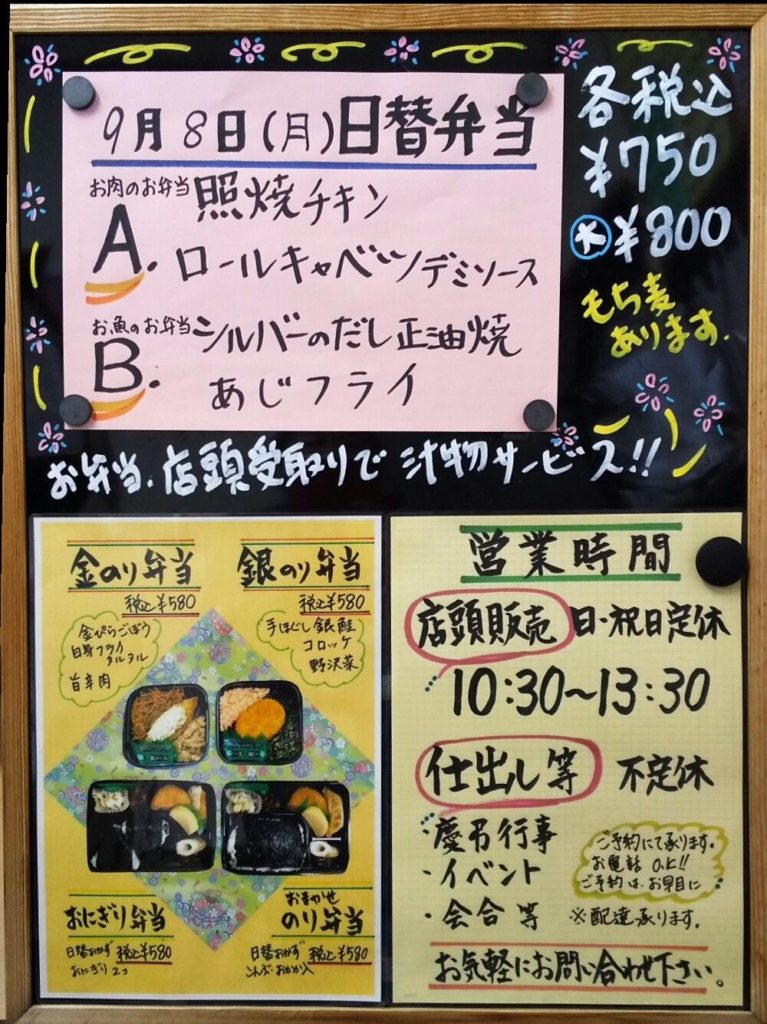 9月8日(月)日替弁当
お肉のお弁当
A. 照焼チキン
ロールキャベツデミソース
お魚のお弁当
B. シルバーのだし正油焼
あじフライ
各税込
¥750
大 ¥800
もち麦
あります.
お弁当.店頭受取りで 汁物サービス!!
金のり弁当
税込¥580
金ぴらごぼう
白身フライ
タルタル
旨辛肉
銀のり弁当
税込¥580
手ほぐし銀鮭
コロッケ
野沢菜
おにぎり弁当
日替おかず 税込¥580
おにぎり2コ
おまかせ
のり弁当
日替おかず 税込¥580
こんぶ・おかか入
営業時間
店頭販売 日・祝日定休
10:30~13:30
仕出し等 不定休
・慶弔行事
・イベント
・会合等
ご予約にて承ります。
お電話O.K!!
ご予約は、お早目に
※配達承ります。
お気軽にお問い合わせ下さい。